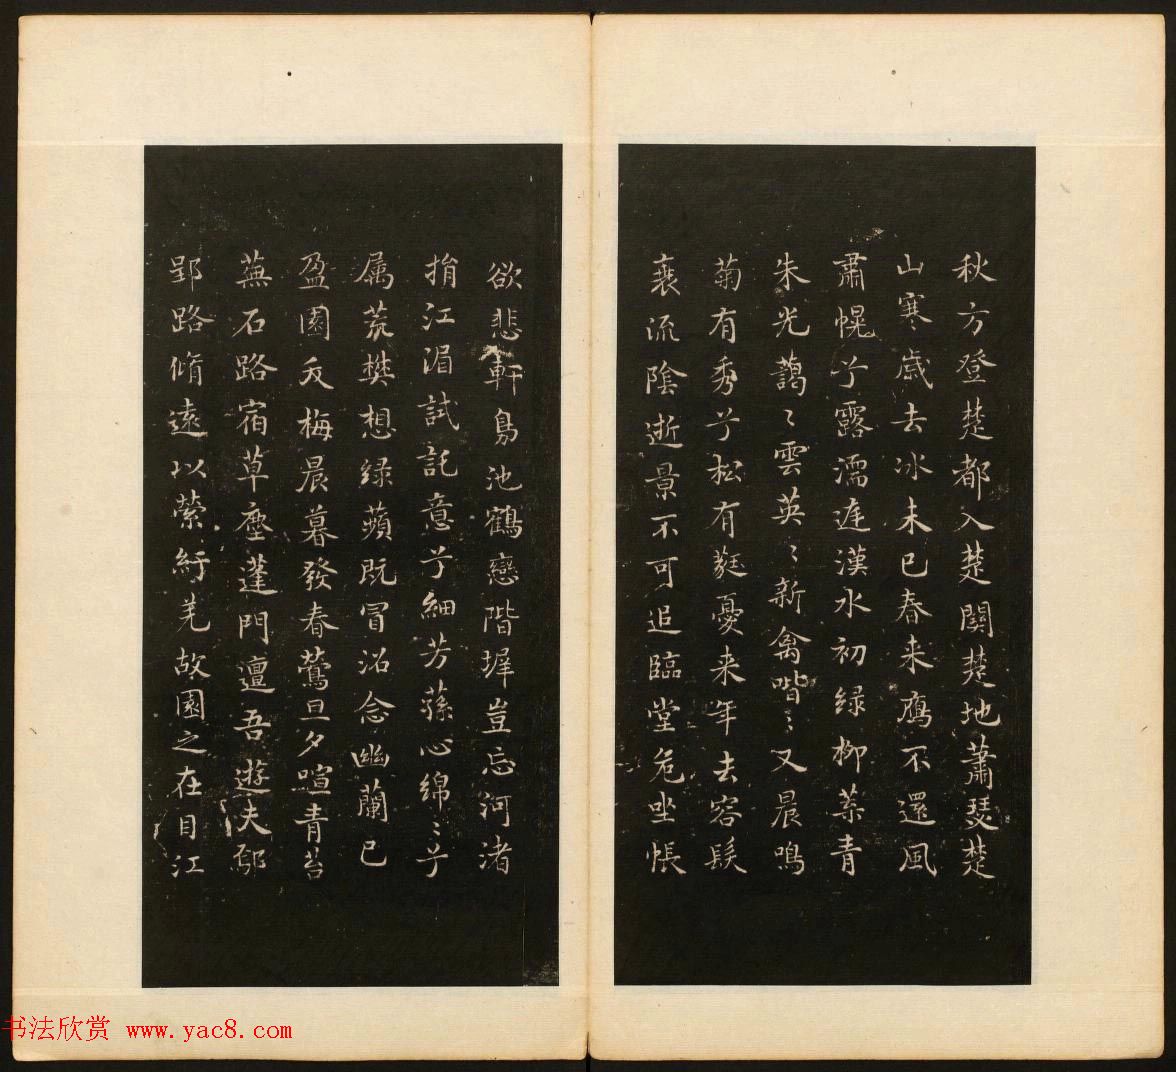 秋方登楚都入楚關楚地蕭瑟楚
山寒歲去冰未已春来鴈不還風
肅幌兮露濡庭漢水初緑柳葉青
朱光藹〻雲英〻新禽喈〻又晨鳴
菊有秀兮松有蕤憂来年去容髮
衰流陰逝景不可追臨堂危坐悵
欲悲軒鳥池鶴戀階墀豈忘河渚
捐江湄試託意兮細芳蓀心綿〻兮
属荒樊想緑蘋既冒沼念幽蘭已
盈園夭梅晨暮發春鶯旦夕喧青苔
蕪石路宿草塵蓬門邅吾遊夫鄢
郢路脩遠以縈紆羌故園之在目江
书法欣赏 www.yac8.com